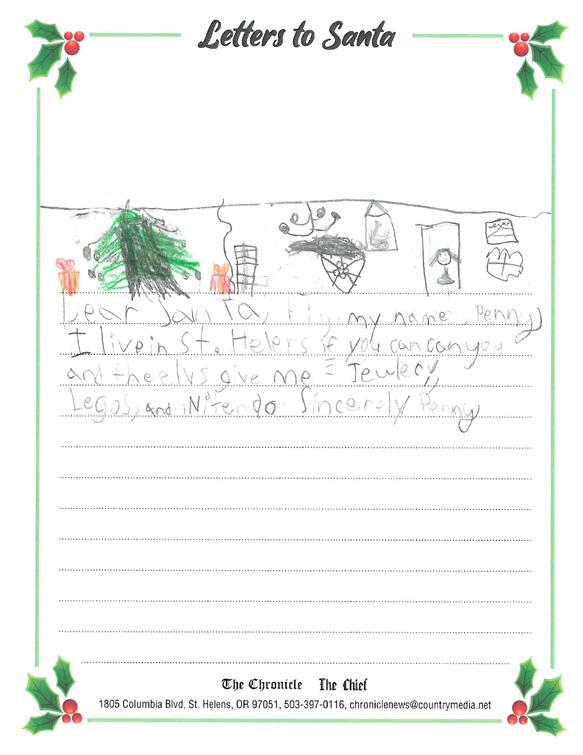 Letters to Santa
Dear Santa, Hi, my name Penny
I live in St. Helers if you can can you
and the elvs give me = Jewlery,
Legos, and Nitendo. Sincerely Penny
The Chronicle The Chief
1805 Columbia Blvd, St. Helens, OR 97051, 503-397-0116, chroniclenews@countrymedia.net